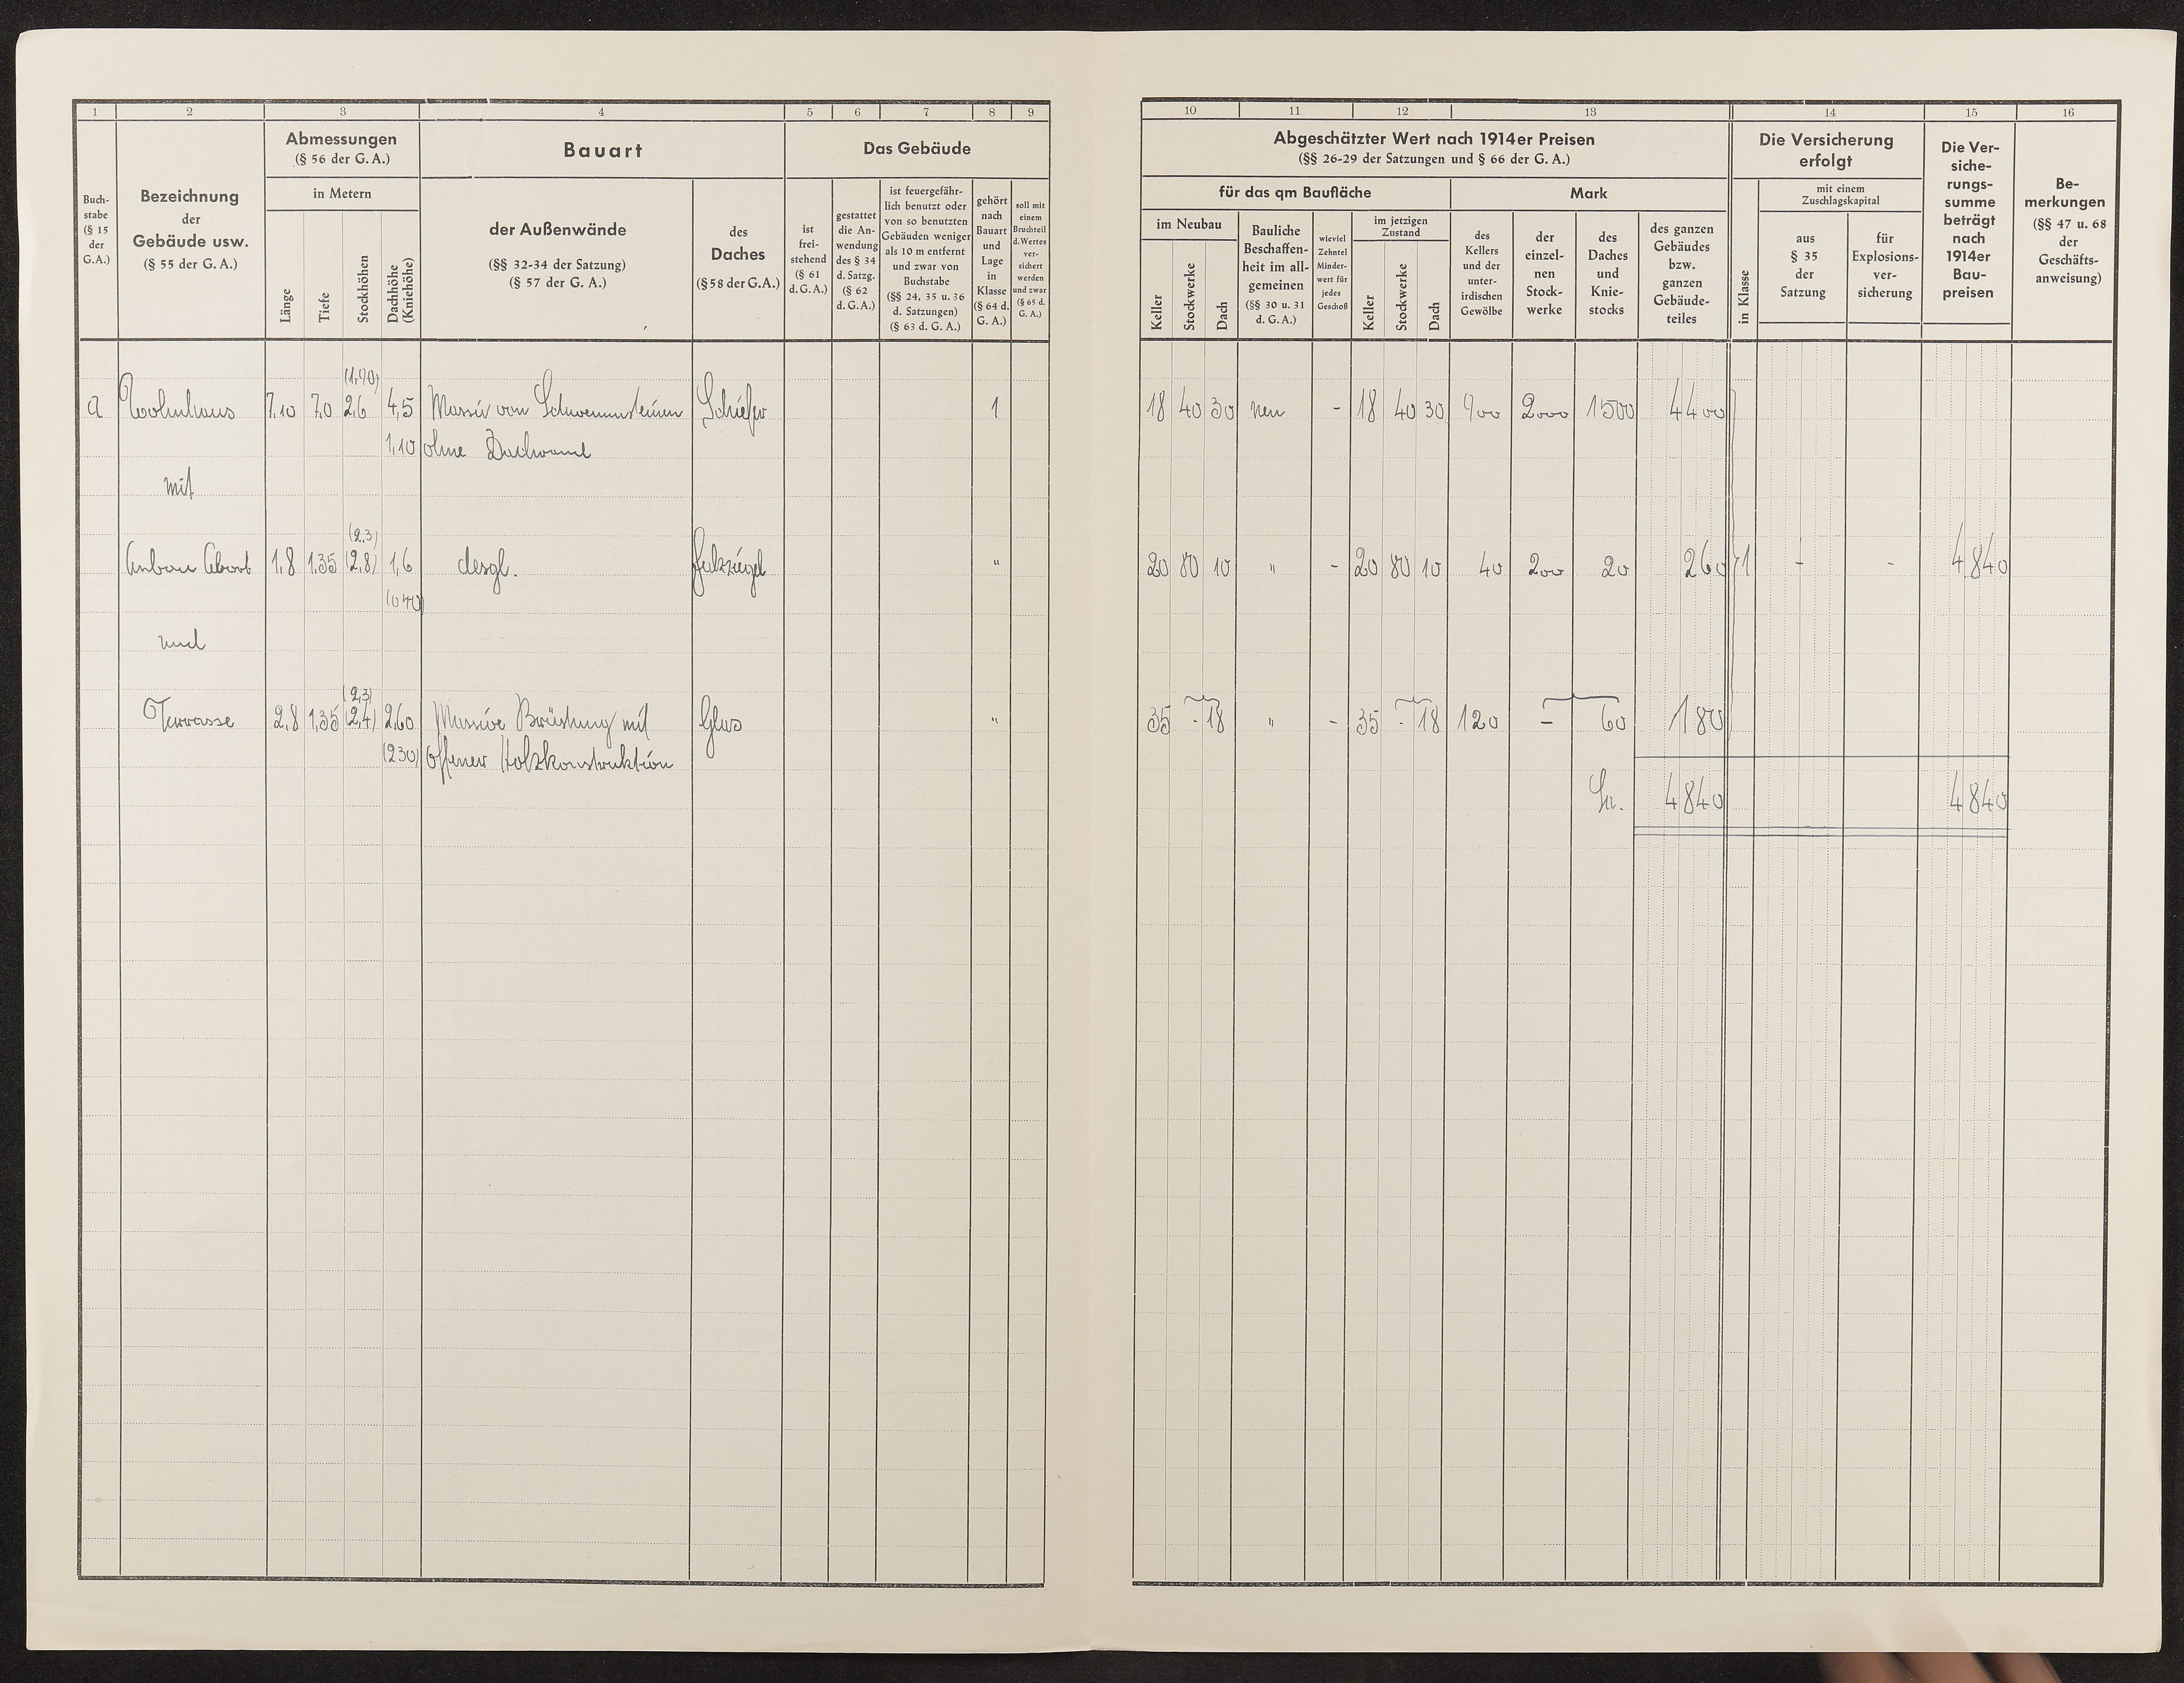 1 2 3 4 5 6 7 8 9
Buch-
stabe
(§ 15
der
G.A.)
Bezeichnung
der
Gebäude usw.
(§ 55 der G. A.)
Abmessungen
(§ 56 der G. A.)
in Metern
Länge
Tiefe
Stockhöhen
Dachhöhe
(Kniehöhe)
Bauart
der Außenwände
(§§ 32-34 der Satzung)
(§ 57 der G. A.)
des
Daches
(§ 58 der G. A.)
Das Gebäude
ist
frei-
stehend
(§ 61
d. G. A.)
gestattet
die An-
wendung
des § 34
d. Satzg.
(§ 62
d. G. A.)
ist feuergefähr-
lich benutzt oder
von so benutzten
Gebäuden weniger
als 10 m entfernt
und zwar von
Buchstabe
(§§ 24, 35 u. 36
d. Satzungen)
(§ 63 d. G. A.)
gehört
nach
Bauart
und
Lage
in
Klasse
(§ 64 d.
G. A.)
soll mit
einem
Bruchteil
d. Wertes
ver-
sichert
werden
und zwar
(§ 65 d.
G. A.)
(1,90)
a Wohnhaus 7,10 7,0 2,6 4,5 Massiv von Schwemmsteinen Schiefer 1
1,10 ohne Dachwand
mit
(2,3)
Anbau Abort 1,8 1,35 (2,8) 1,6 desgl. Falzziegel "
(0,40)
und
(2,3)
Terrasse 2,8 1,35 (2,4) 2,60 Massive Brüstung mit Glas "
(2,30) offener Holzkonstruktion
10 11 12 13 14 15 16
Abgeschätzter Wert nach 1914er Preisen
(§§ 26-29 der Satzungen und § 66 der G. A.)
für das qm Baufläche
Mark
im Neubau
Keller
Stockwerke
Dach
Bauliche
Beschaffen-
heit im all-
gemeinen
(§§ 30 u. 31
d. G. A.)
wieviel
Zehntel
Minder-
wert für
jedes
Geschoß
im jetzigen
Zustand
Keller
Stockwerke
Dach
des
Kellers
und der
unter-
irdischen
Gewölbe
der
einzel-
nen
Stock-
werke
des
Daches
und
Knie-
stocks
des ganzen
Gebäudes
bzw.
ganzen
Gebäude-
teiles
Die Versicherung
erfolgt
in Klasse
mit einem
Zuschlagskapital
aus
§ 35
der
Satzung
für
Explosions-
ver-
sicherung
Die Ver-
siche-
rungs-
summe
beträgt
nach
1914er
Bau-
preisen
Be-
merkungen
(§§ 47 u. 68
der
Geschäfts-
anweisung)
18 40 30 neu - 18 40 30 900 2000 1500 4400
20 80 10 " - 20 80 10 40 200 20 260 1 - - 4840
35 - 18 " - 35 - 18 120 - 60 180
Sa. 4840 4840